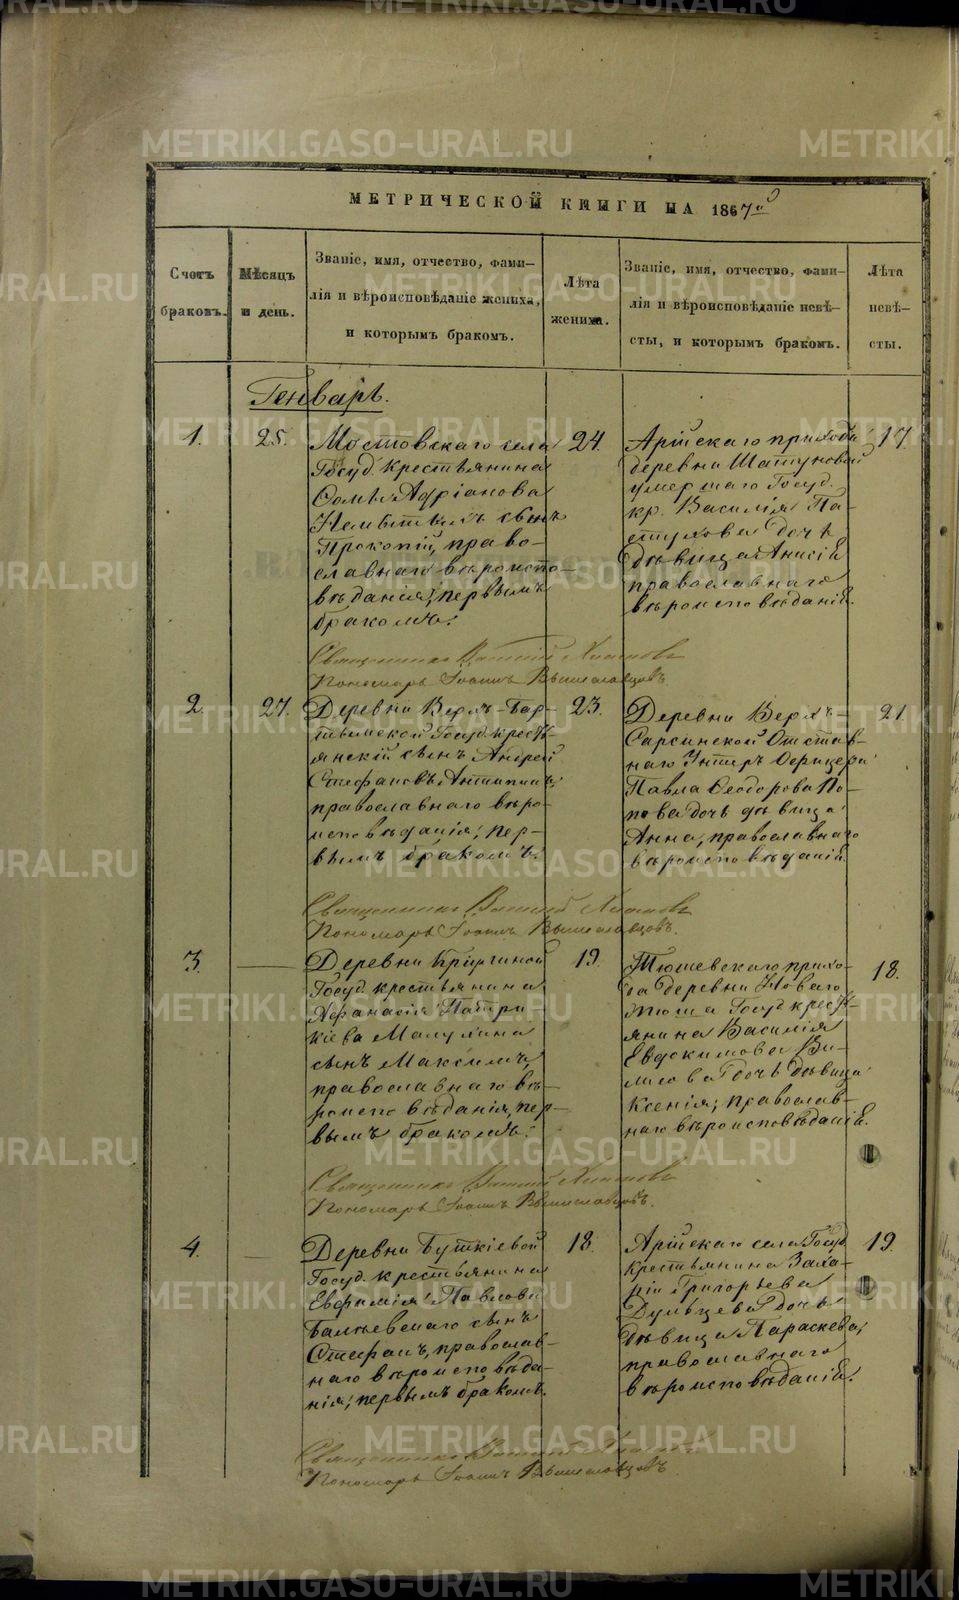 METRIKI.GASO-URAL.RU
МЕТРИЧЕСКОЙ КНИГИ НА 1867й
Счетъ браковъ.
Мѣсяцъ и день.
Званіе, имя, отчество, фами-
лія и вѣроисповѣданіе жениха,
и которымъ бракомъ.
Лѣта жениха.
Званіе, имя, отчество, фами-
лія и вѣроисповѣданіе невѣ-
сты, и которымъ бракомъ.
Лѣта невѣ-
сты.
Генварь.
1.
25.
Мостовскаго села
Госуд. крестьянина
Сомы Адріанова
сынъ
Прокопій, право-
славнаго вѣроиспо-
вѣданія; первымъ
бракомъ.
24.
Арійскаго прихода
деревни Шатуновой
умершаго Госуд.
кр. Василія Па-
стухова дочь
дѣвица Анисія
православнаго
вѣроисповѣданія.
17.
Священникъ
Пономарь Іоаннъ Вышеславцовъ
2.
27.
Деревни Верхъ-Бар-
тымской Госуд. кресть-
янскій сынъ Андрей
Стефановъ Антипинъ;
православнаго вѣро-
исповѣданія; пер-
вымъ бракомъ.
23.
Деревни Верхъ-
Сарсинской Отстав-
наго Унтеръ Офицера
Павла Ѳеодорова По-
пова дочь дѣвица
Анна, православнаго
вѣроисповѣданія.
21.
Священникъ
Пономарь Іоаннъ Вышеславцовъ.
3.
Деревни
Госуд. крестьянина
Аѳанасія Патри-
кіева
сынъ Максимъ,
православнаго вѣ-
роисповѣданія, пер-
вымъ бракомъ.
19.
Тюшевскаго прихо-
да деревни Новаго
Тюша Госуд. кресть-
янина Василія
Евдокимова
дочь дѣвица
Ксенія; православ-
наго вѣроисповѣданія.
18.
Священникъ
Пономарь Іоаннъ Вышеславцовъ.
4.
Деревни Буткіевой
Госуд. крестьянина
Евфимія Павлова
сынъ
Стефанъ, православ-
наго вѣроисповѣда-
нія; первымъ бракомъ.
18.
Арійскаго села Госуд.
крестьянина Заха-
рія Григорьева
дочь
дѣвица Параскева;
православнаго
вѣроисповѣданія.
19.
Священникъ
Пономарь Іоаннъ Вышеславцовъ.